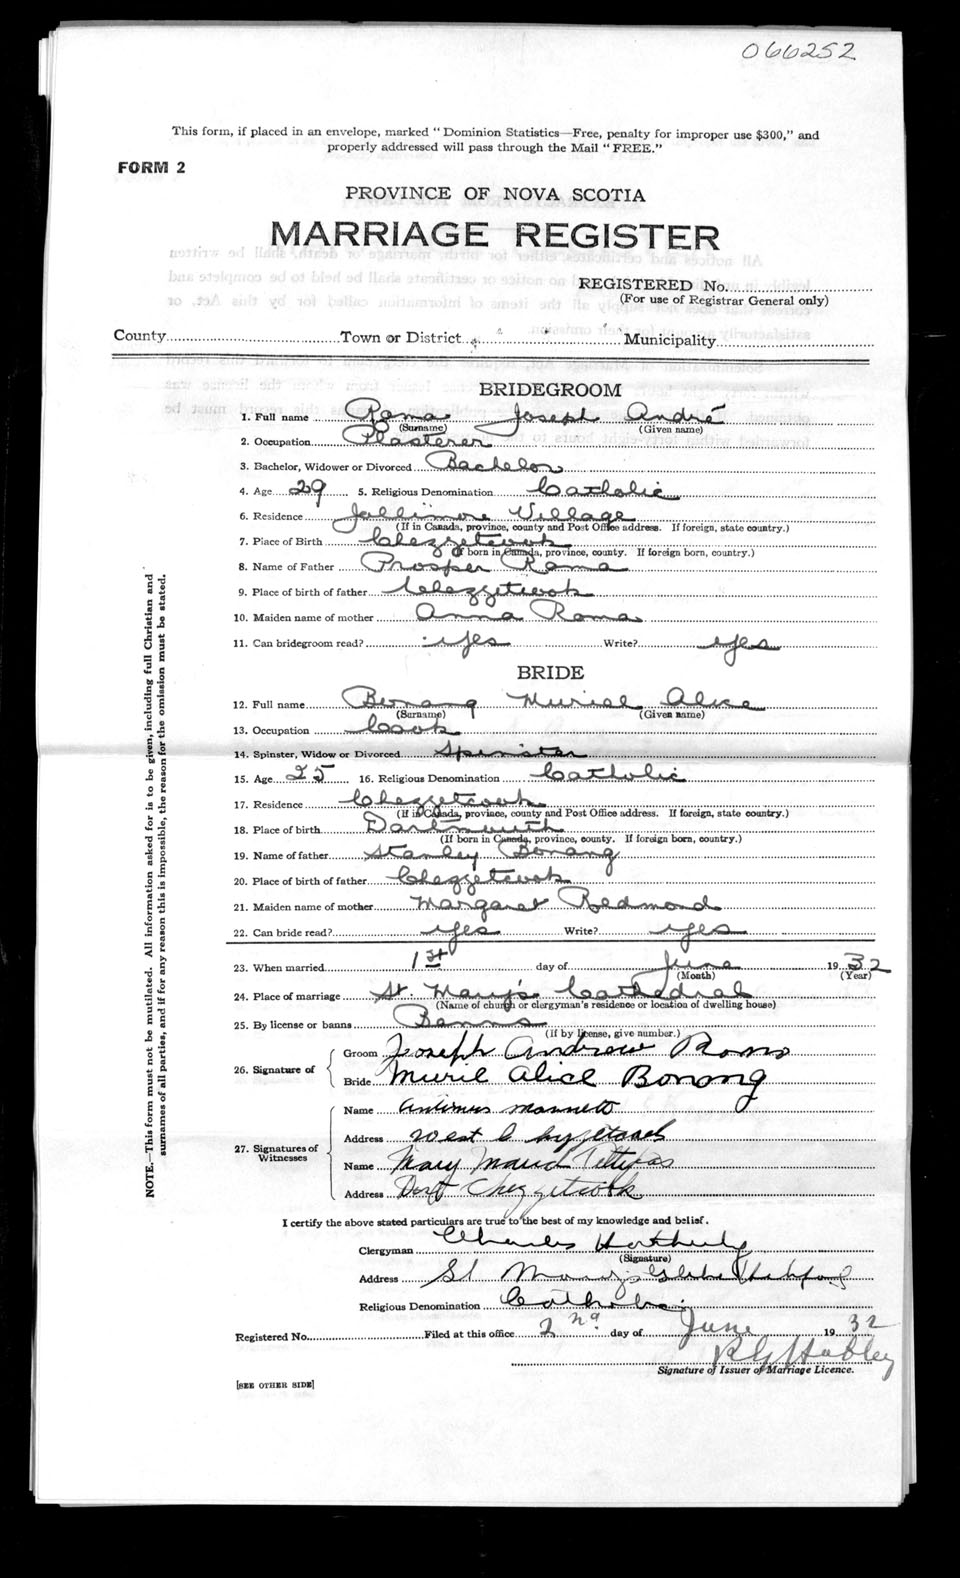 066252
This form, if placed in an envelope, marked " Dominion Statistics—Free, penalty for improper use $300," and
properly addressed will pass through the Mail " FREE."
FORM 2
PROVINCE OF NOVA SCOTIA
MARRIAGE REGISTER
REGISTERED No.
(For use of Registrar General only)
County Town or District Municipality
BRIDEGROOM
1. Full name Roma Joseph André
(Surname) (Given name)
2. Occupation Plasterer
3. Bachelor, Widower or Divorced Bachelor
4. Age 29 5. Religious Denomination Catholic
6. Residence Jollimore Village
(If in Canada, province, county and Post Office address. If foreign, state country.)
7. Place of Birth Chezzetcook
(If born in Canada, province, county. If foreign born, country.)
8. Name of Father Prosper Roma
9. Place of birth of father Chezzetcook
10. Maiden name of mother Anna Roma
11. Can bridegroom read? yes Write? yes
BRIDE
12. Full name Bonang Muriel Alice
(Surname) (Given name)
13. Occupation Cook
14. Spinster, Widow or Divorced Spinster
15. Age 25 16. Religious Denomination Catholic
17. Residence Chezzetcook
(If in Canada, province, county and Post Office address. If foreign, state country.)
18. Place of birth Dartmouth
(If born in Canada, province, county. If foreign born, country.)
19. Name of father Stanley Bonang
20. Place of birth of father Chezzetcook
21. Maiden name of mother Margaret Redmond
22. Can bride read? yes Write? yes
23. When married 1st day of June 1932
(Month) (Year)
24. Place of marriage St. Mary's Cathedral
(Name of church or clergyman's residence or location of dwelling house)
25. By license or banns Banns
(If by license, give number.)
26. Signature of
Groom Joseph Andrew Roma
Bride Muril Alice Bonong
27. Signatures of Witnesses
Name
Address West
Name Mary Maud Pettipas
Address Chezzetcook
I certify the above stated particulars are true to the best of my knowledge and belief.
Clergyman Charles
(Signature)
Address St Mary's Glebe
Religious Denomination Catholic
Registered No. Filed at this office 2nd day of June 1932
Signature of Issuer of Marriage Licence.
[SEE OTHER SIDE]
NOTE.—This form must not be mutilated. All information asked for is to be given, including full Christian and
surnames of all parties, and if for any reason this is impossible, the reason for the omission must be stated.